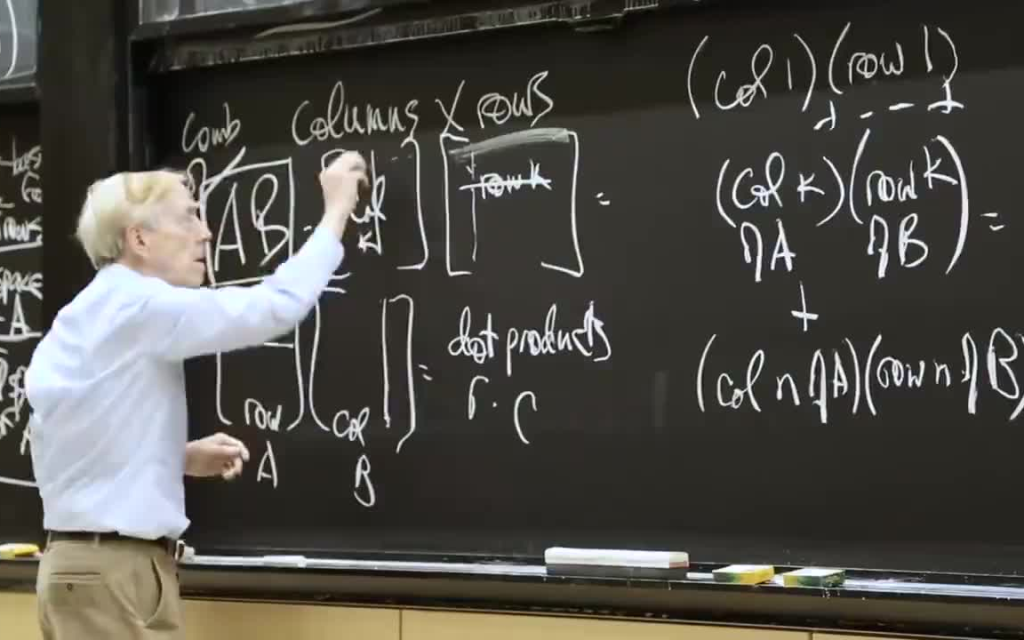 Comb Columns X rows
AB = [col K] [row K] =
[row A] [col B] = dot products
r · c
(col 1)(row 1)
+ - - - +
(col K)(row K) =
of A of B
+
(col n of A)(row n of B)